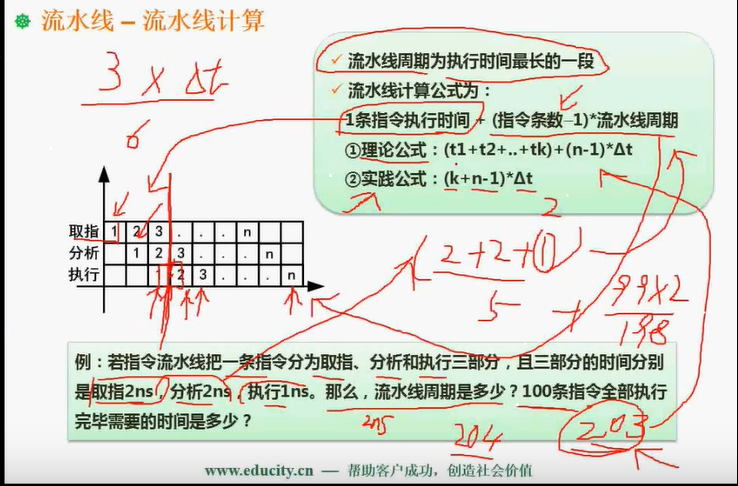 流水线 – 流水线计算
3 x Δt
6
流水线周期为执行时间最长的一段
流水线计算公式为：
1条指令执行时间 + (指令条数–1)*流水线周期
①理论公式：(t1+t2+..+tk)+(n-1)*Δt
②实践公式：(k+n-1)*Δt
2
取指 1 2 3 . . . n
分析 1 2 3 . . . n
执行 1 2 3 . . . n
(2+2+①)
5 + 99x2
198
例：若指令流水线把一条指令分为取指、分析和执行三部分，且三部分的时间分别
是取指2ns，分析2ns，执行1ns。那么，流水线周期是多少？100条指令全部执行
完毕需要的时间是多少？
2ns
204
203
www.educity.cn — 帮助客户成功，创造社会价值